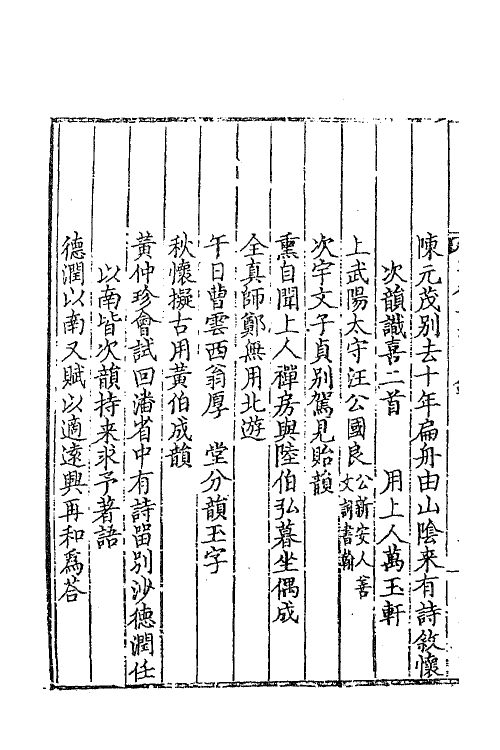 陳元茂别去十年扁舟由山陰来有詩敘懷
次韻識喜二首　用上人萬玉軒
上武陽太守汪公國良公新安人善文詞書翰
次宇文子貞别駕見貽韻
熏自聞上人禪房與陸伯弘暮坐偶成
全真師鄭無用北遊
午日曹雲西翁厚　堂分韻玉字
秋懷擬古用黃伯成韻
黃仲珍會試回潘省中有詩留别沙德潤任
以南皆次韻持来求予著語
德潤以南又賦以適遠興再和爲荅